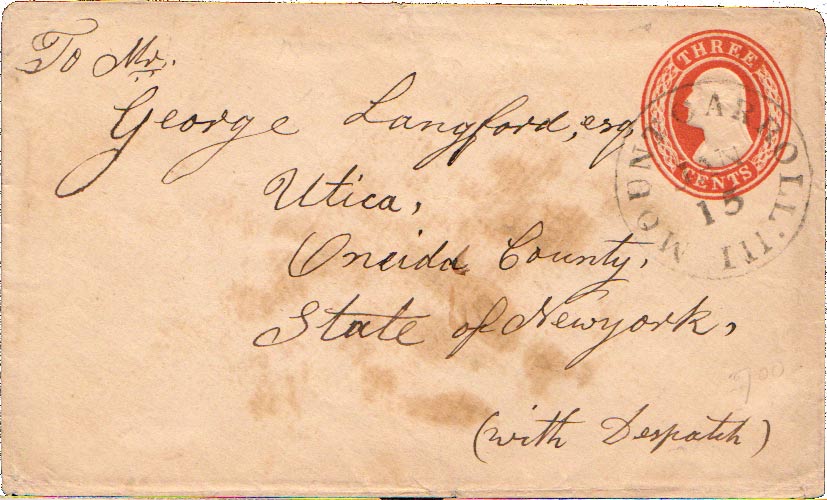 To Mr.
George Langford, esq,
Utica,
Oneida County,
State of Newyork,
(with Despatch)
THREE
CENTS
MOUNT CARROLL·Ill
JAN
15